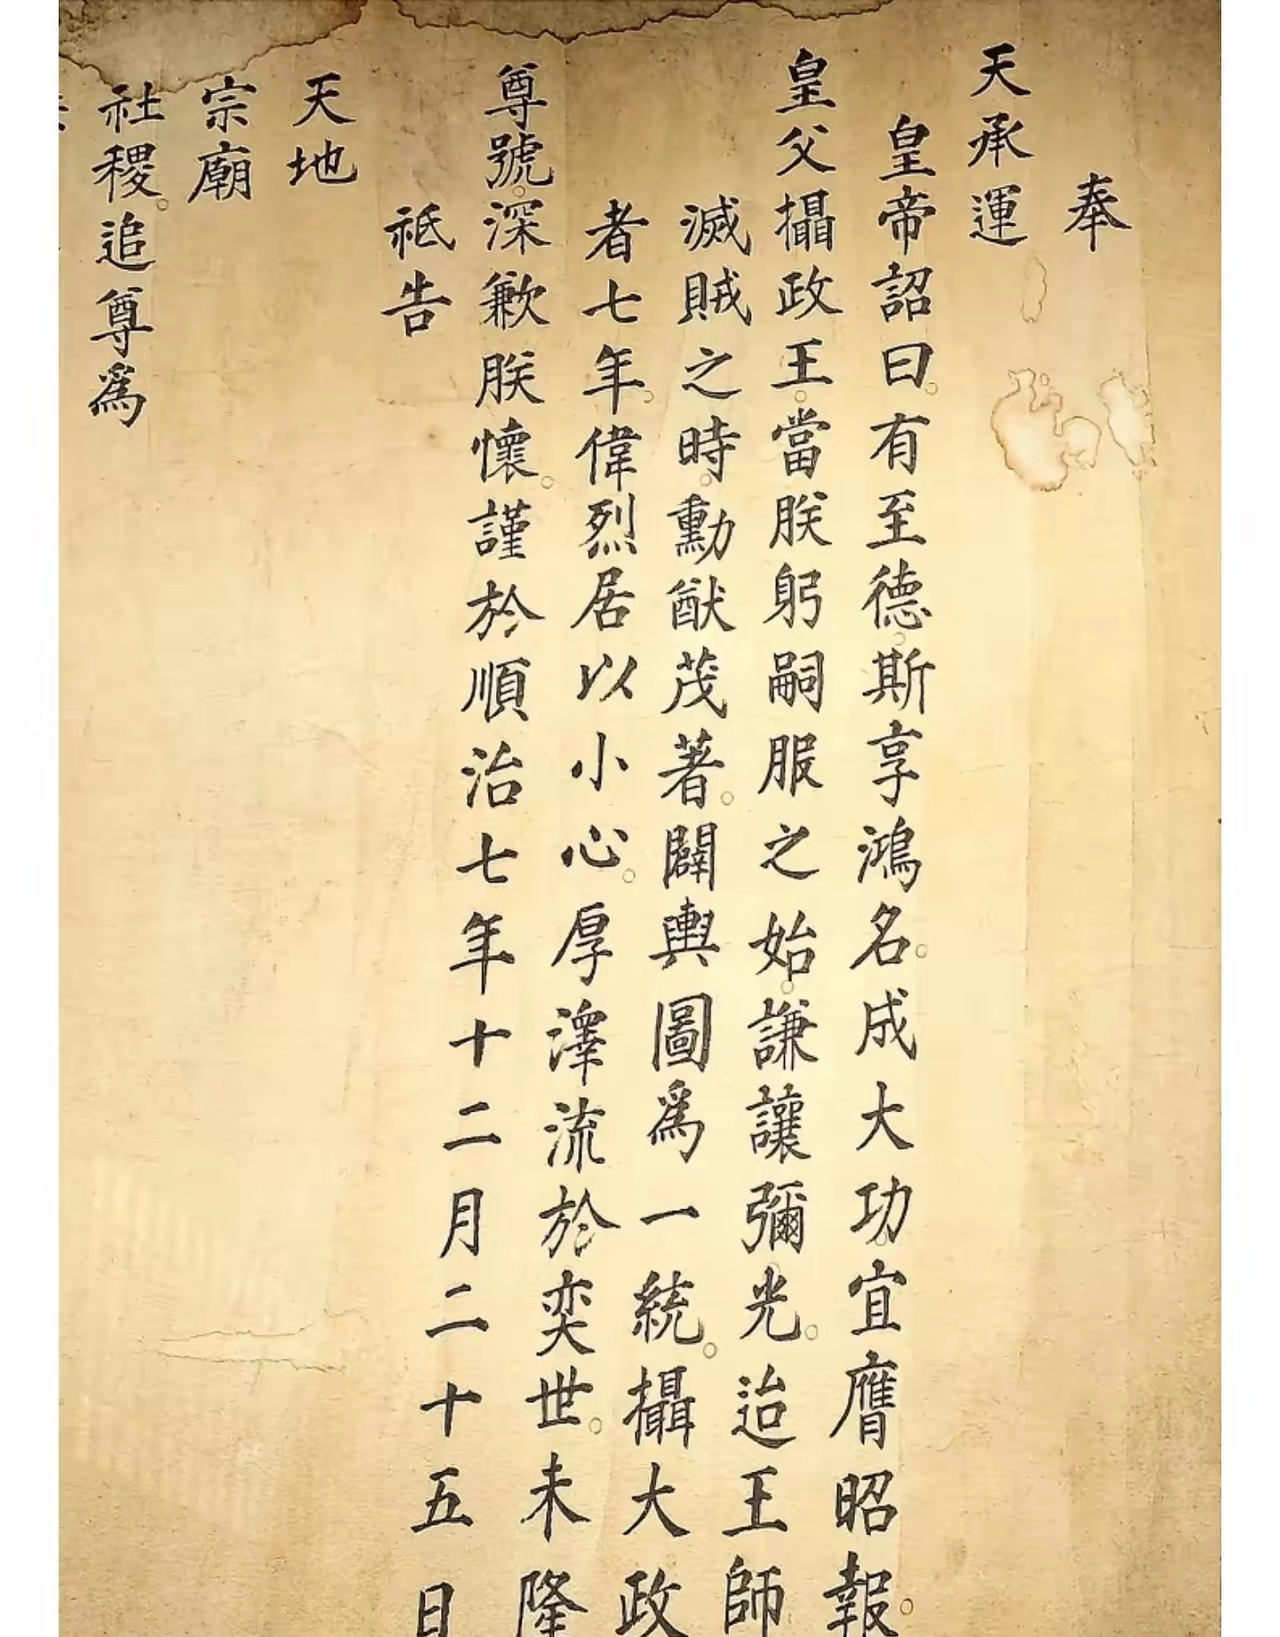 奉
天承運
皇帝詔曰。有至德。斯享鴻名。成大功。宜膺昭報。
皇父攝政王。當朕躬嗣服之始。謙讓彌光。迨王師
滅賊之時。勳猷茂著。闢輿圖爲一統。攝大政
者七年。偉烈居以小心。厚澤流於奕世。未隆
尊號。深歉朕懷。謹於順治七年十二月二十五日
祗告
天地
宗廟
社稷。追尊爲